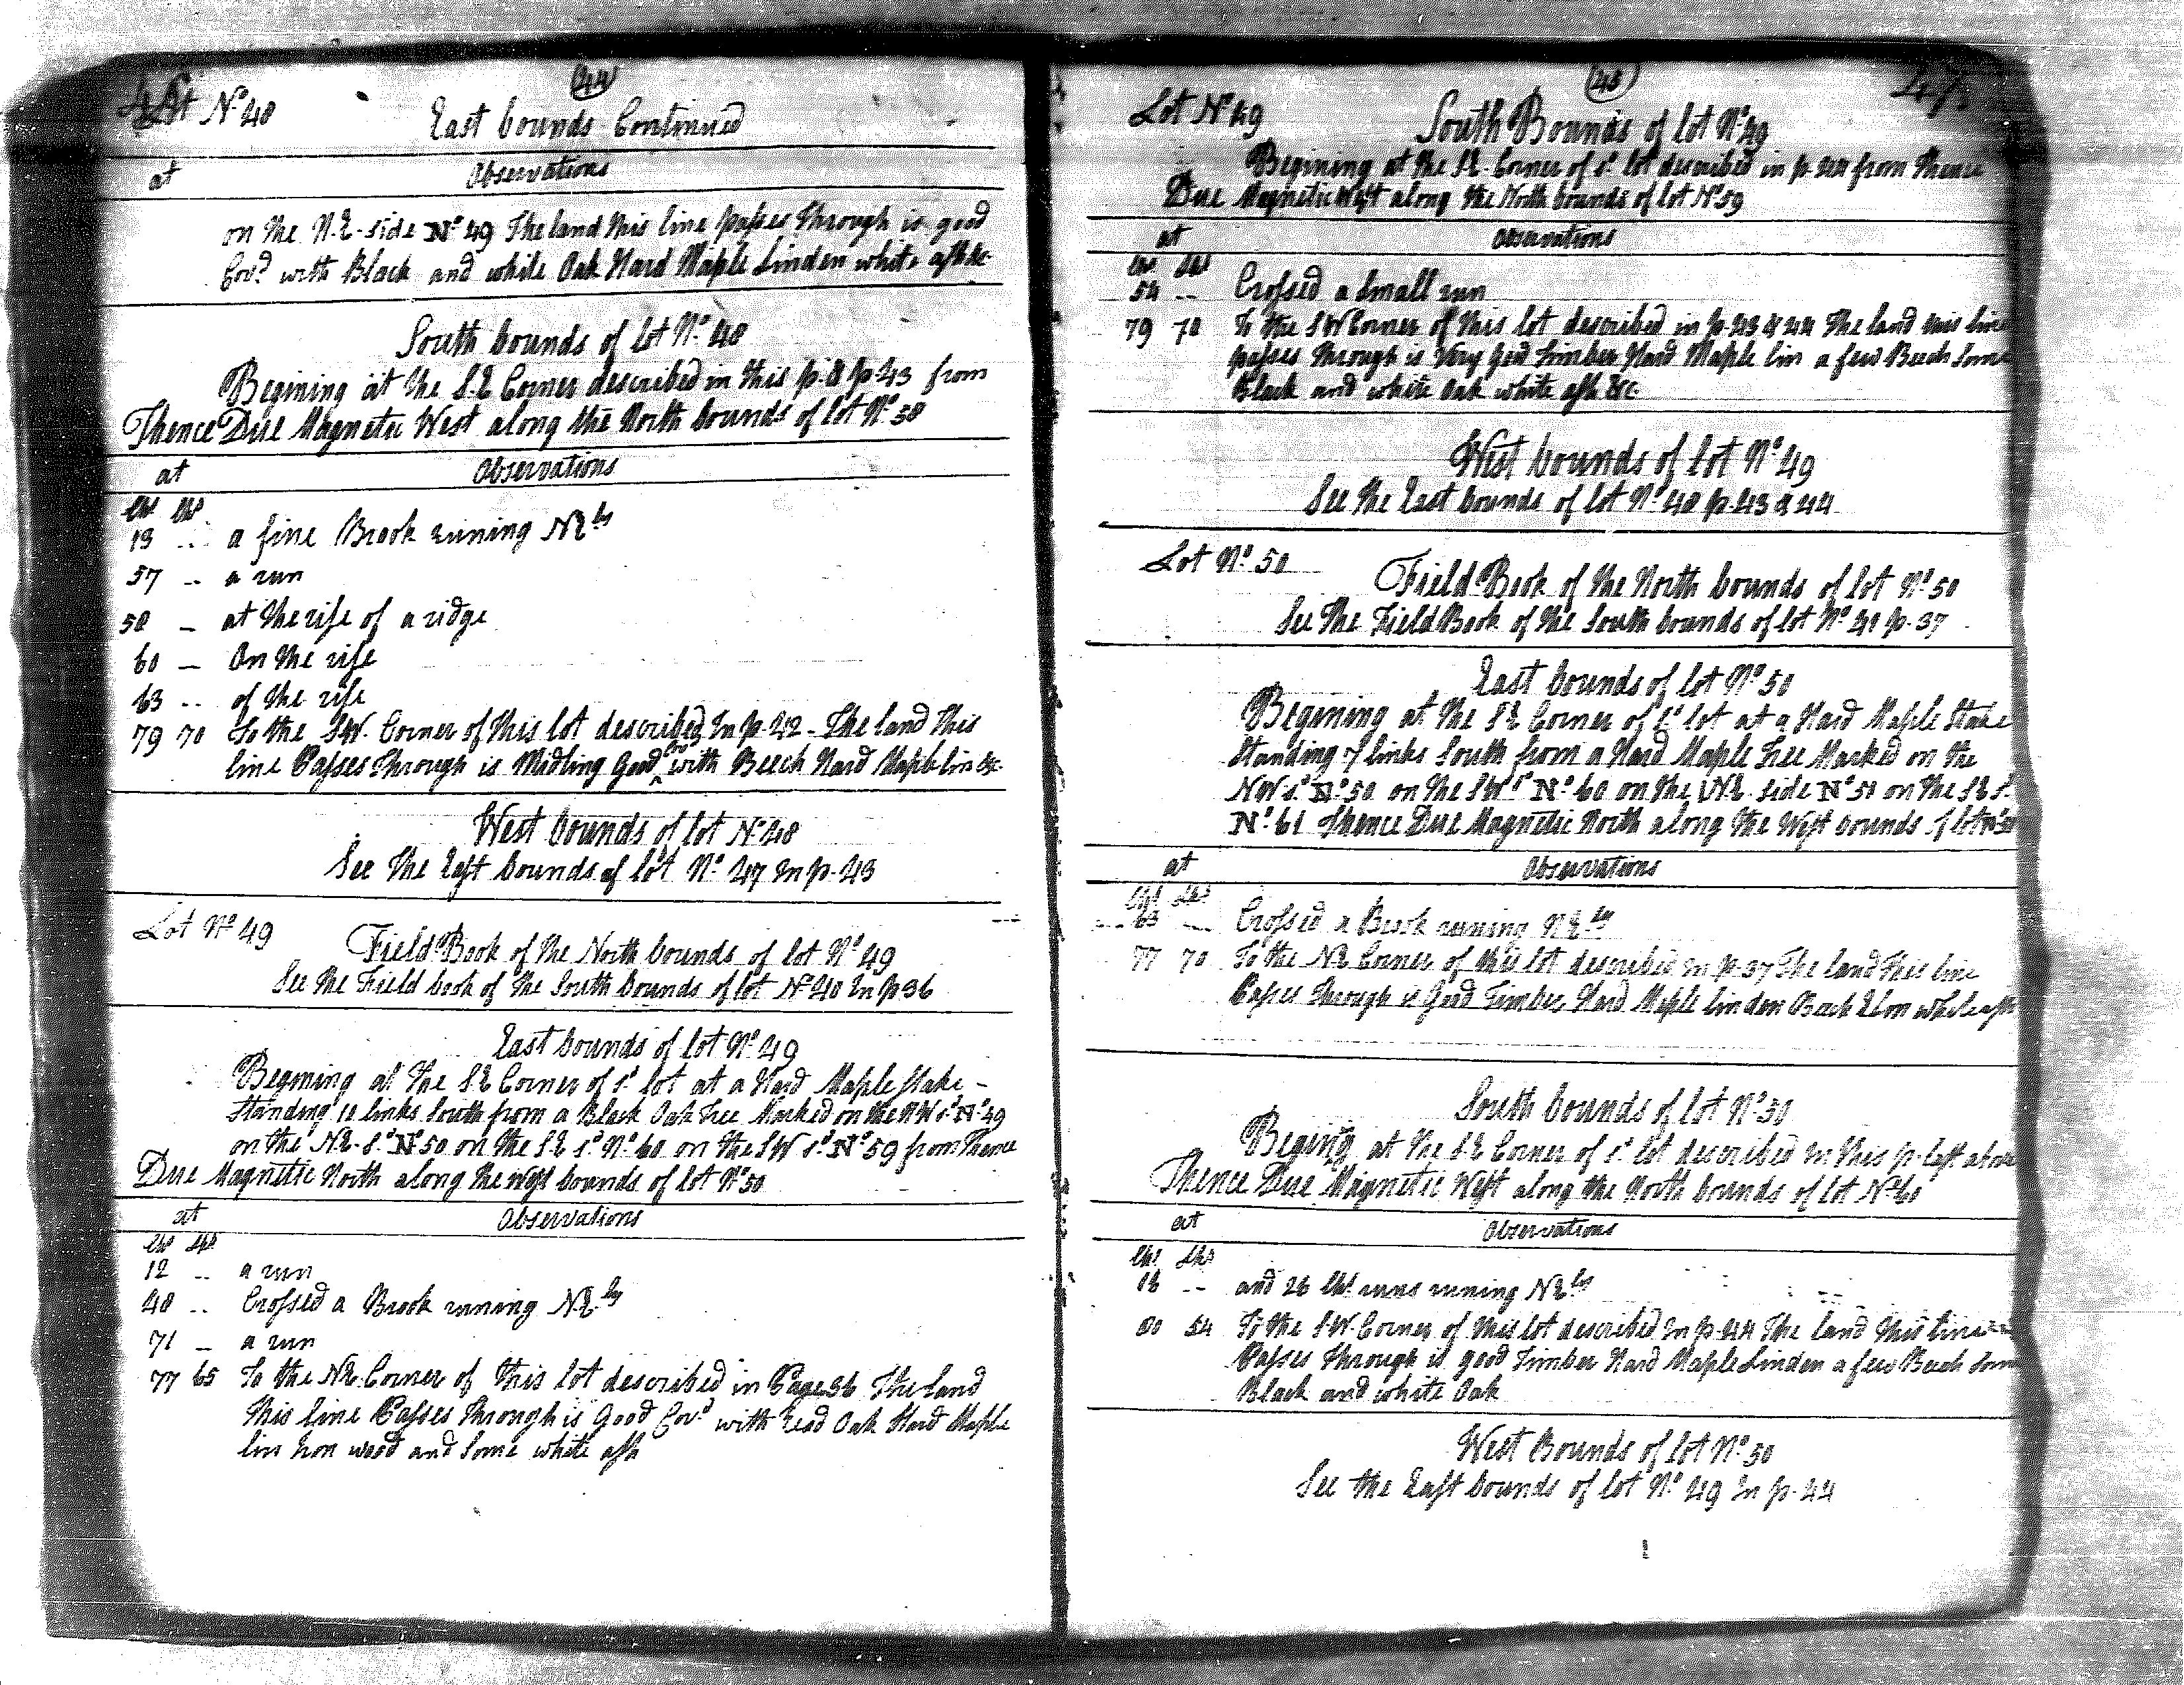 44
Lot No. 48
East bounds Continued
at Observations
on the N.E. side No. 49 The land this line passes through is good
Covd with Black and white Oak Hard Maple Linden white ash &c
South bounds of lot No. 48
Begining at the S.E. Corner described in this p. & p. 43 from
Thence Due Magnetic West along the North bounds of lot No. 58
at Observations
Chs Lks
13 .. a fine Brook runing NEly
57 .. a run
58 – at the rise of a ridge
60 – On the rise
63 .. of the rise
79 70 To the S.W. Corner of this lot described In p. 42 – The land this
line Passes Through is Midling Good Covd with Beech Hard Maple lin &c.
West bounds of lot No. 48
See the East bounds of lot No. 47 In p. 43
Lot No. 49
Field Book of the North bounds of lot No. 49
See the Field book of the South bounds of lot No. 40 In p 36
East bounds of lot No. 49
Begining at the S.E Corner of sd lot at a Hard Maple stake –
Standing 18 links South from a Black Oak Tree Marked on the NW sd No. 49
on the N.E. sd No. 50 on the S.E sd No. 60 on the S W sd No. 59 from Thence
Due Magnetic North along the West bounds of lot No. 50
at Observations
Chs Lks
12 .. a run
48 .. Crossed a Brook runing N.E.ly
71 – a run
77 65 To the N.E. Corner of this lot described in Page 36 The Land
this line Passes Through is Good Covd with read Oak Hard Maple
lin Iron wood and Some white ash
45
47
Lot No. 49
South Bounds of lot No. 49
Begining at the S.E. Corner of sd lot described in p. 44 from Thence
Due Magnetic West along the North bounds of lot No. 59
at Observations
Chs Lks
54 -- Crossed a Small run
79 70 To the S W Corner of this lot described in p. 43 & 44 The land this line
passes through is Very Good Timber Hard Maple lin a few Beech Some
Black and white Oak white ash &c.
West bounds of lot No. 49
See the East bounds of lot No. 48 p. 43 & 44
Lot No. 50
Field Book of the North bounds of lot No. 50
See the Field Book of the South bounds of lot No. 41 p. 37
East bounds of lot No. 50
Begining at the S E Corner of sd lot at a Hard Maple Stake
Standing 7 links South from a Hard Maple Tree Marked on the
N W sd No. 50 on the S W sd No. 60 on the N.E. side No. 51 on the S E sd
No. 61 Thence Due Magnetic North along the West bounds of lot No. 51
at Observations
Chs Lks
63 -- Crossed a Brook runing N Ely
77 70 To the N E Corner of this lot described In p. 37 The land this line
Passes Through is Good Timber Hard Maple linden Beech Elm white ash
South bounds of lot No. 50
Begining at the S E Corner of sd lot described In this p. left above
Thence Due Magnetic West along the North bounds of lot No. 60
at Observations
Chs Lks
18 -- and 26 Chs runs runing N Ely
80 54 To the S W. Corner of this lot described In p. 44 The land this line
Passes through is good Timber Hard Maple Linden a few Beech Some
Black and white Oak
West Bounds of lot No. 50
See the East bounds of lot No. 49 In p. 44